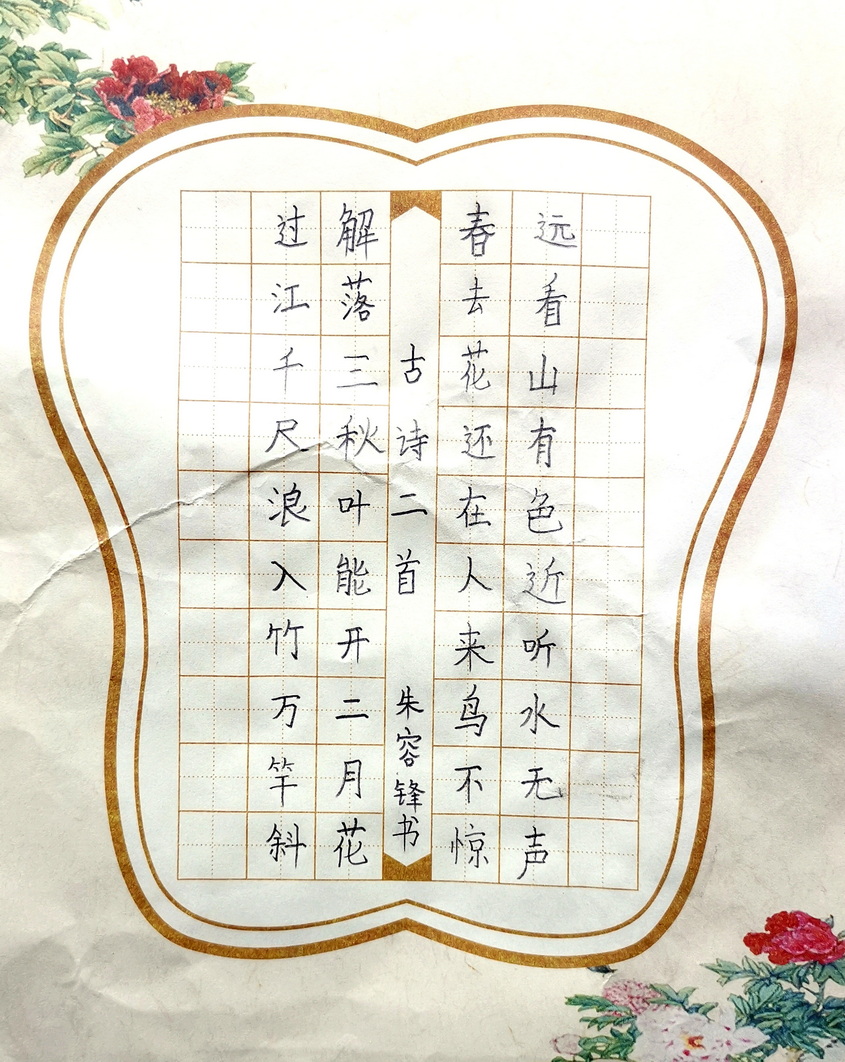 远看山有色近听水无声
春去花还在人来鸟不惊
古诗二首 朱容锋书
解落三秋叶能开二月花
过江千尺浪入竹万竿斜